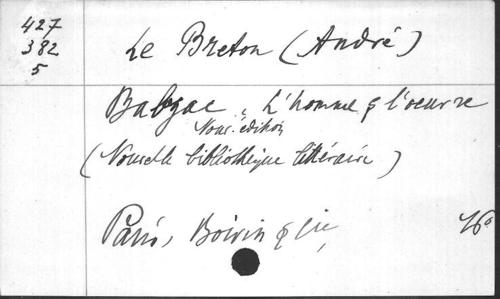 427
382
5
Le Breton (André)
Balzac, L'homme & l'oeuvre
Nouv. édition
(Nouvelle bibliothèque littéraire)
Paris, Boivin & Cie,
16°